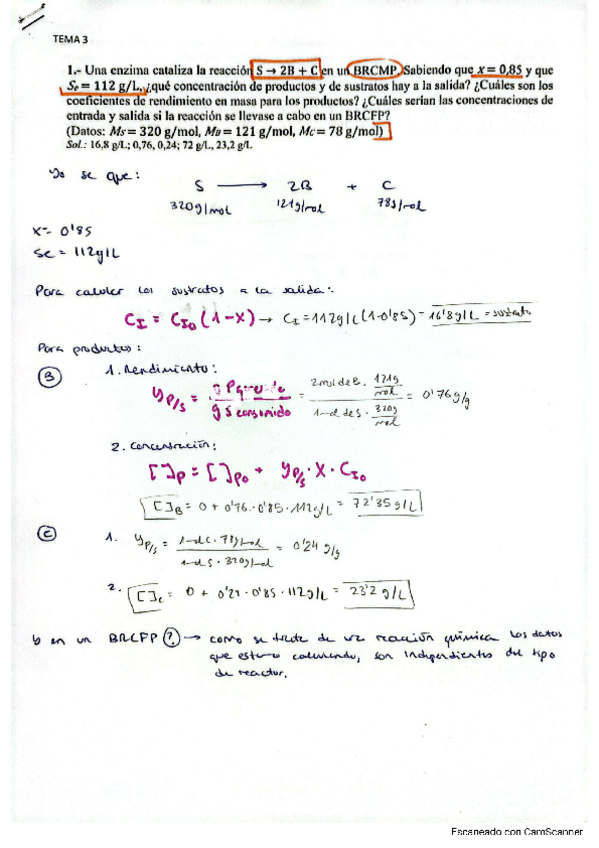 TEMA 3
1.- Una enzima cataliza la reacción S → 2B + C en un BRCMP. Sabiendo que x = 0,85 y que
Se = 112 g/L, ¿qué concentración de productos y de sustratos hay a la salida? ¿Cuáles son los
coeficientes de rendimiento en masa para los productos? ¿Cuáles serían las concentraciones de
entrada y salida si la reacción se llevase a cabo en un BRCFP?
(Datos: MS = 320 g/mol, MB = 121 g/mol, MC = 78 g/mol)
Sol.: 16,8 g/L; 0,76, 0,24; 72 g/L, 23,2 g/L
Yo se que:
S → 2B + C
320g/mol 121g/mol 78g/mol
X = 0'85
Se = 112g/L
Para calcular los sustratos a la salida:
CI = CI0 (1-X) → CI = 112g/L (1-0'85) = 16'8g/L = sustrato
Para productos:
B 1. Rendimiento:
YP/S = g P / g S consumido = 2mol de B · 121g/mol / 1mol de S · 320g/mol = 0'76 g/g
2. Concentración:
[ ]P = [ ]P0 + YP/S · X · CI0
[ ]B = 0 + 0'76 · 0'85 · 112g/L = 72'35 g/L
C 1. YP/S = 1mol C · 78g/mol / 1mol S · 320g/mol = 0'24 g/g
2. [ ]C = 0 + 0'24 · 0'85 · 112g/L = 23'2 g/L
b en un BRCFP ? → como se trata de una reacción química los datos
que estamos calculando, son independientes del tipo
de reactor.
Escaneado con CamScanner